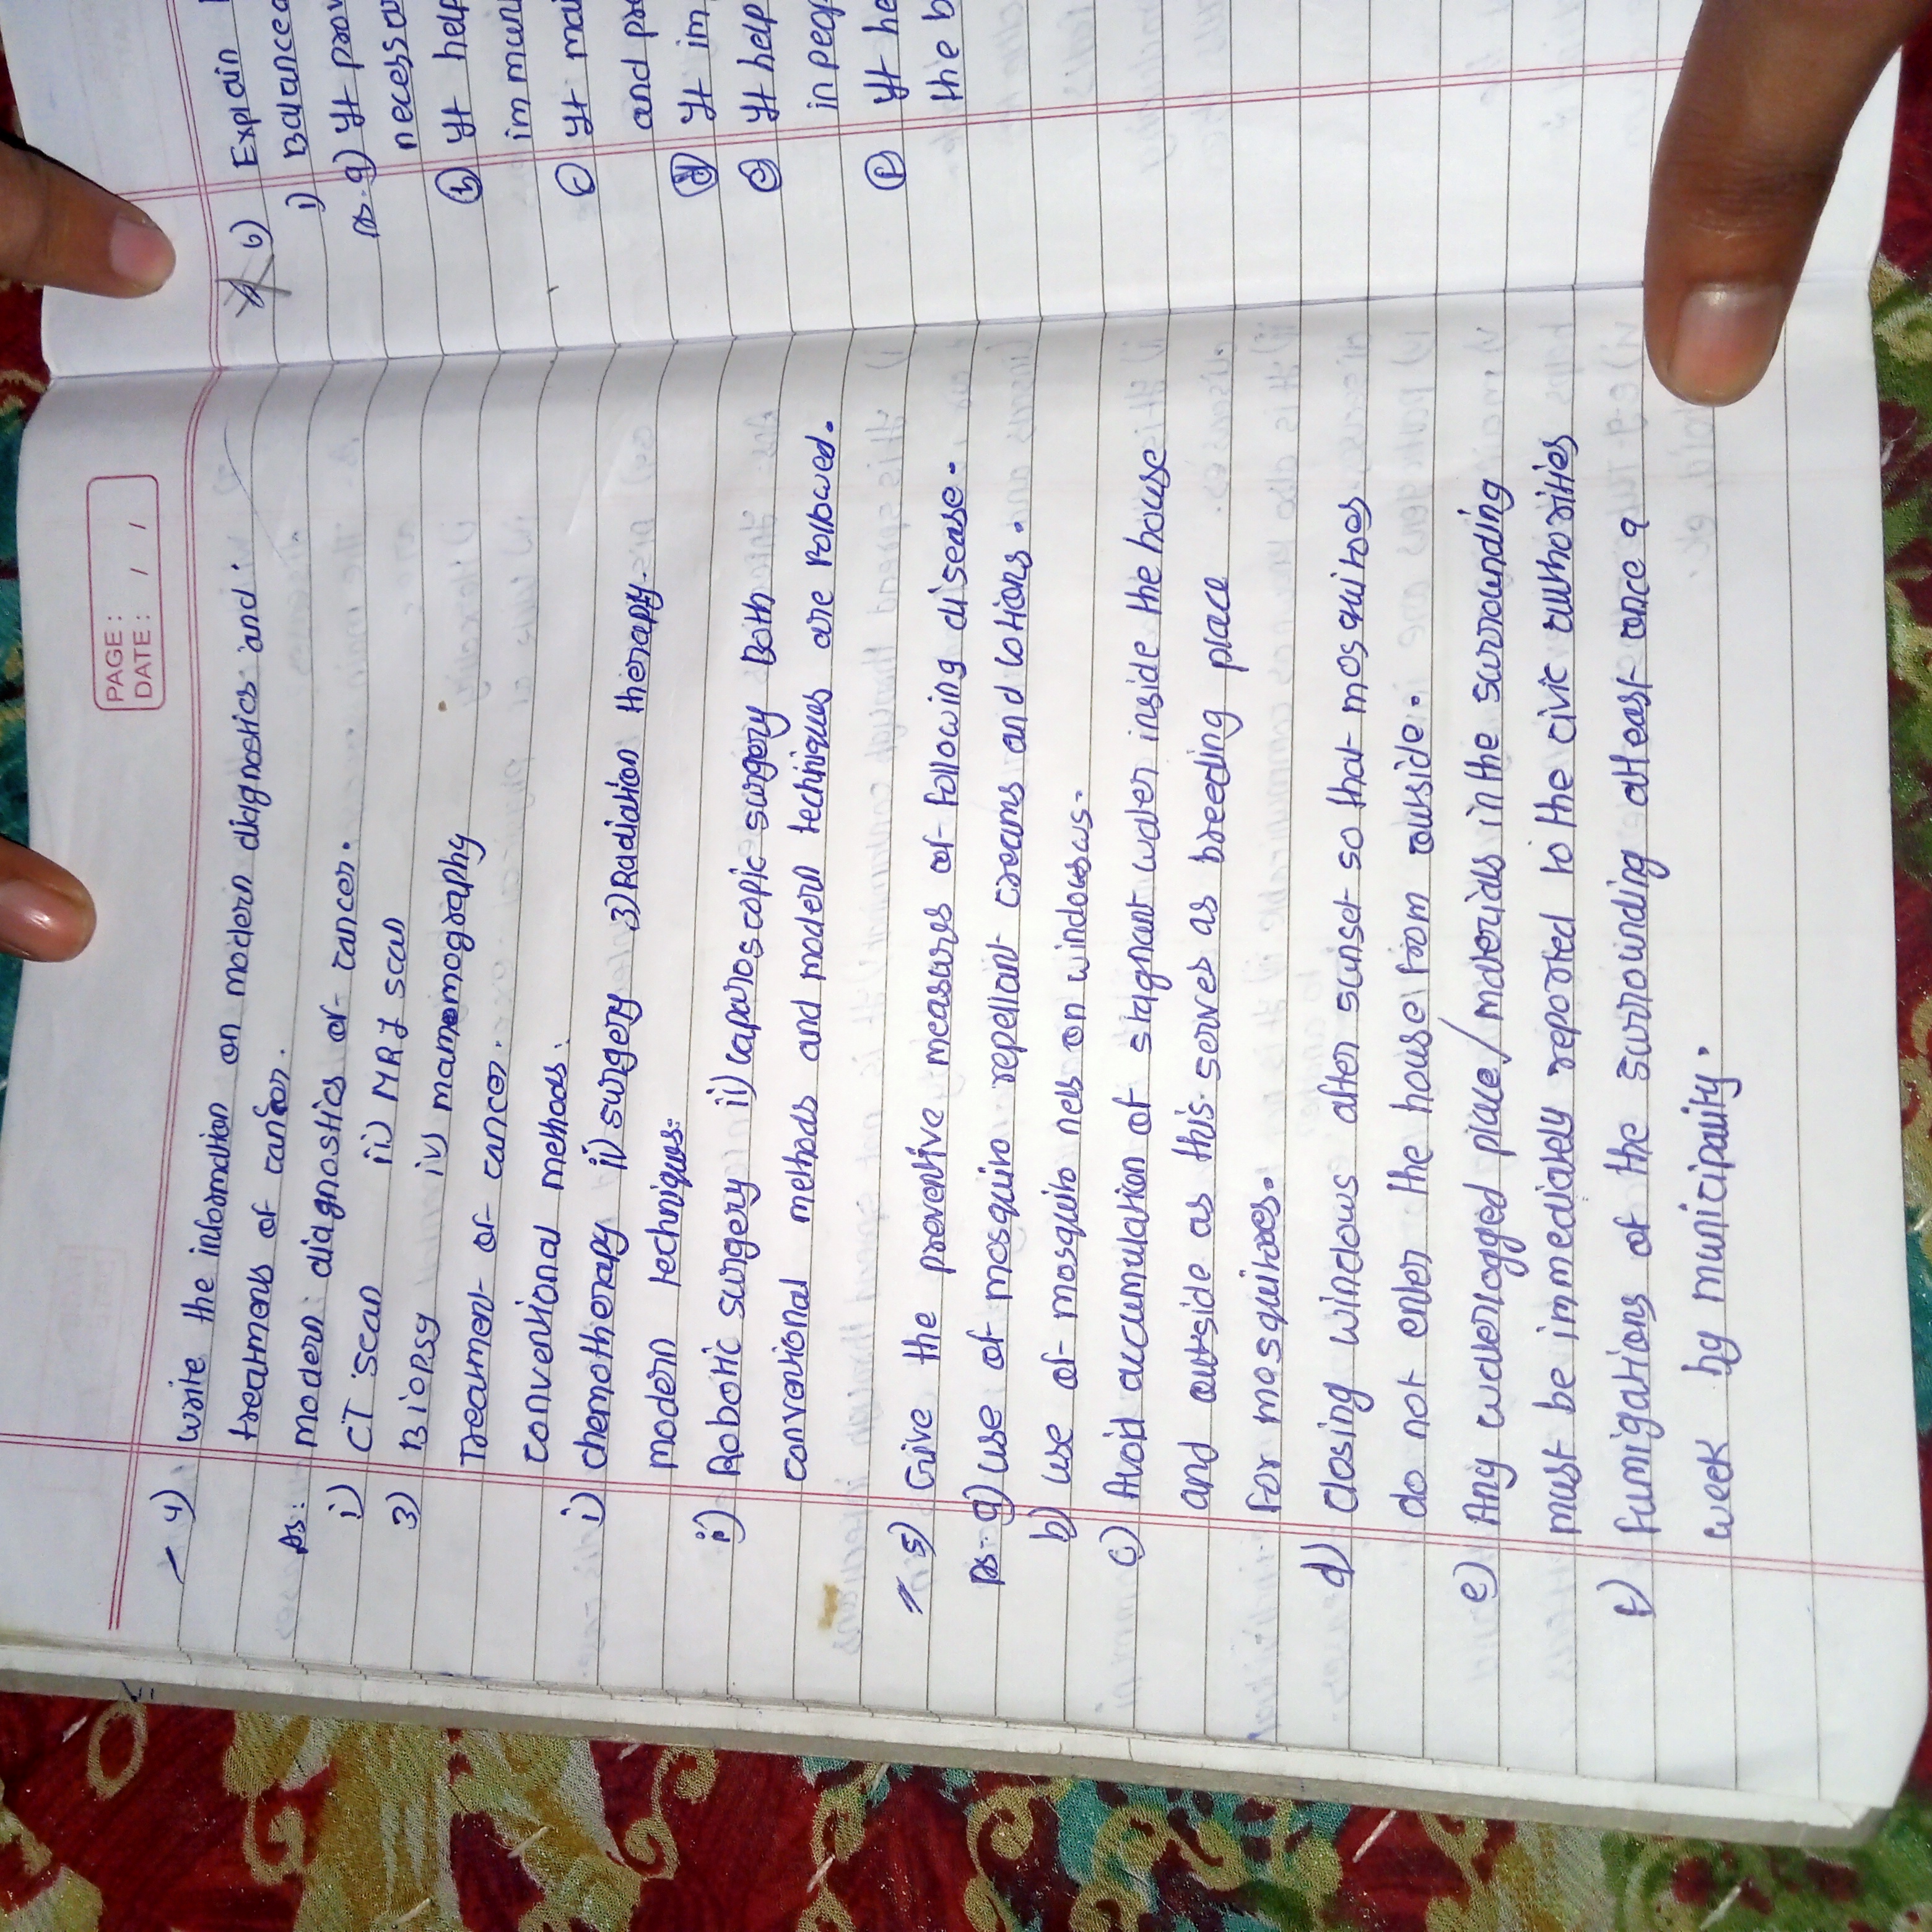 PAGE :
DATE : / /
4) write the information on modern diagnostics and
treatments of cancer.
As: modern diagnostics of cancer.
i) CT scan ii) MRI scan
3) Biopsy iv) mammography
Treatment of cancer.
conventional methods:
i) chemotherapy ii) surgery 3) Radiation therapy.
modern techniques:
ii) Robotic surgery ii) Laparoscopic surgery Both
conventional methods and modern techniques are followed.
5) Give the preventive measures of following disease.
As:- a) use of mosquito repellant creams and lotions.
b) use of mosquito nets on windows.
c) Avoid accumulation of stagnant water inside the house
and outside as this serves as breeding place
for mosquitoes.
d) closing windows after sunset so that mosquitoes
do not enter the house from outside.
e) Any waterlogged place/materials in the surrounding
must be immediately reported to the civic authorities
f) fumigations of the surrounding atleast once a
week by municipality.
6) Explain
i) Balanced
As- a) It prov
necessa
b) It help
immun
c) It mai
and pr
d) It im
e) It help
in peop
f) It he
the b